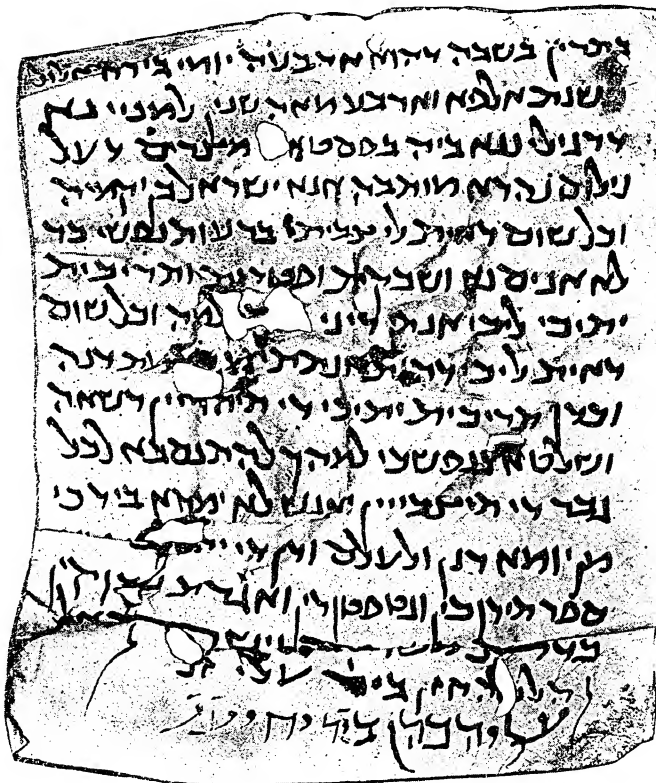 בתרין בשבה דהוא ארבעה יומי בירח אלול
שנת אלפא וארבע מאה שנין למניינא
דרגילננא ביה בפסטאט מצרים דעל
נילוס נהרא מותבה אנא ישראל ביר
וכל שום דאית לי צביתי ברעות נפשי כד
לא אניסנא ושבקית ופטרית ותריכית
יתיכי ליכי אנת דיני וכל שום
דאית ליכי דהוית אנתתי מן דנה
וכדן תריכית יתיכי די תיהויין רשאה
ושלטאה בנפשכי למהך להתנסבא לכל
גבר די תיצבייין ואנש לא ימחא בידכי
מן יומא דנן ולעלם ודן די
ספר תירוכין וגט פטורין ואגרת שבוקין
ביר עלי
כהן